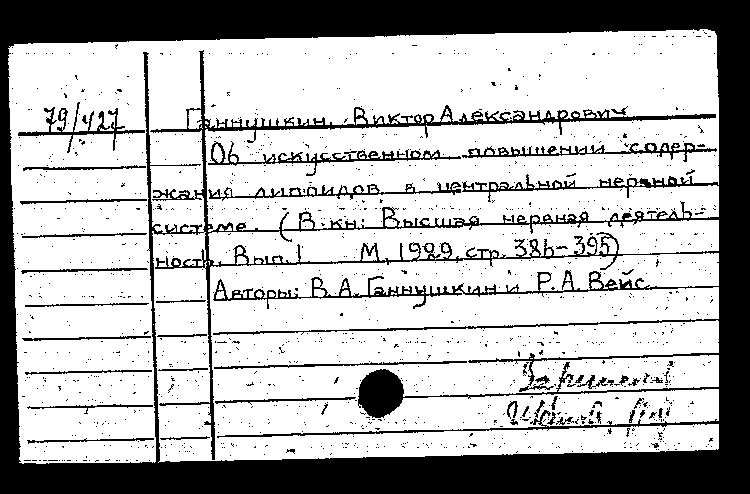 79/427 Ганнушкин, Виктор Александрович
Об искусственном повышении содер-
жания липоидов в центральной нервной
системе. (В кн: Высшая нервная деятель-
ность. Вып. 1. М., 1929, стр. 386-395)
Авторы: В. А. Ганнушкин и Р. А. Вейс.